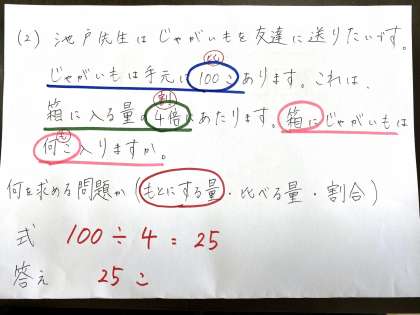 (2) 池戸先生はじゃがいもを友達に送りたいです。
じゃがいもは手元に100こあります。これは、
箱に入る量の4倍にあたります。箱にじゃがいもは
何こ入りますか。
何を求める問題か(もとにする量・比べる量・割合)
式 100÷4=25
答え 25こ